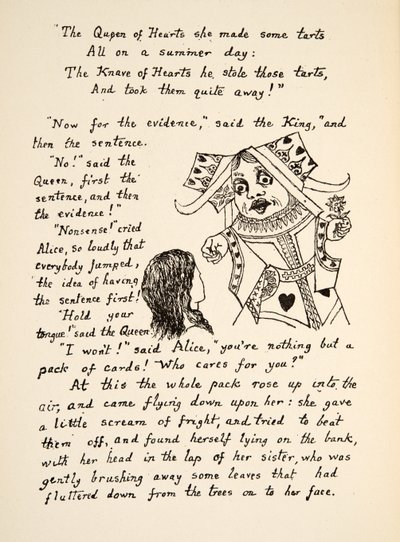 "The Queen of Hearts she made some tarts
All on a summer day:
The Knave of Hearts he stole those tarts,
And took them quite away!"
"Now for the evidence," said the King, "and
then the sentence.
"No!" said the
Queen, first the
sentence, and then
the evidence!"
"Nonsense!" cried
Alice, so loudly that
everybody jumped,
the idea of having
the sentence first!
"Hold your
tongue!" said the Queen.
"I won't!" said Alice, "you're nothing but a
pack of cards! Who cares for you?"
At this the whole pack rose up into the
air, and came flying down upon her: she gave
a little scream of fright, and tried to beat
them off, and found herself lying on the bank,
with her head in the lap of her sister, who was
gently brushing away some leaves that had
fluttered down from the trees on to her face.